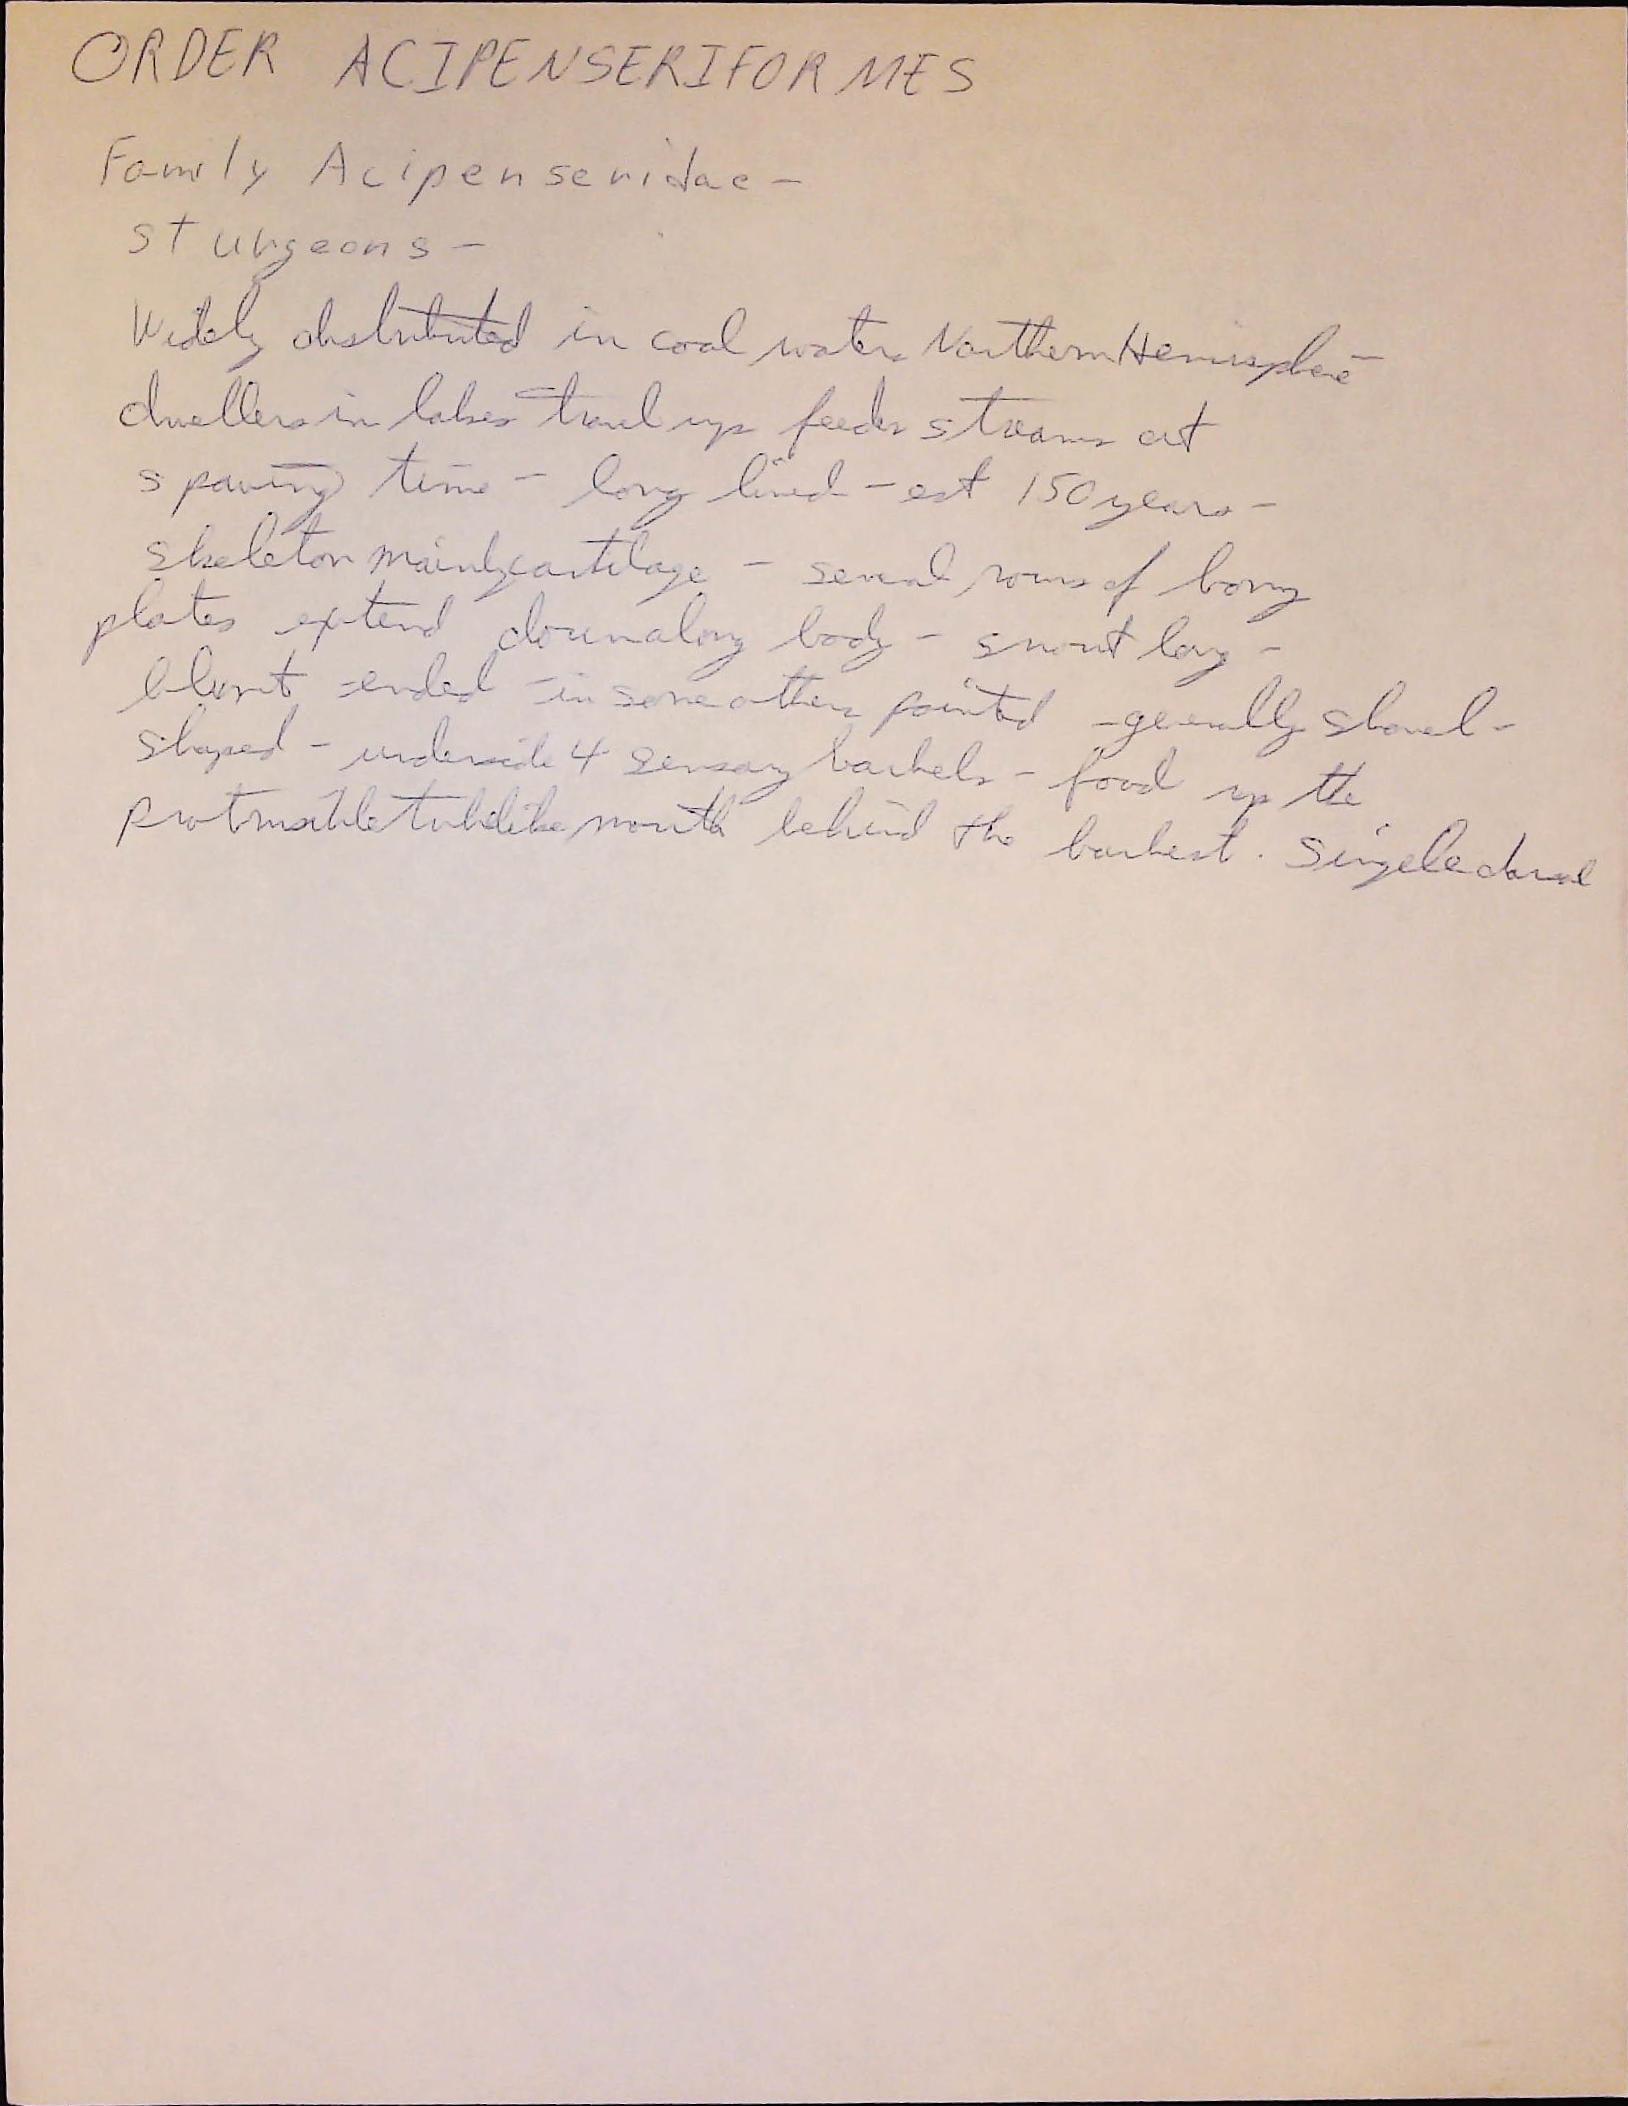 ORDER ACIPENSERIFORMES
Family Acipenseridae -
sturgeons -
Widely distributed in cool waters Northern Hemisphere -
dwellers in lakes travel up feeder streams at
spawing time - long lived - est 150 years -
skeleton mainly cartilage - several rows of bony
plates extend down along body - snout long -
blunt -ended - in some others pointed - generally shovel -
shaped - underside 4 sensory barbels - food up the
protrusible tubelike mouth behind the barbest. Singele dorsal